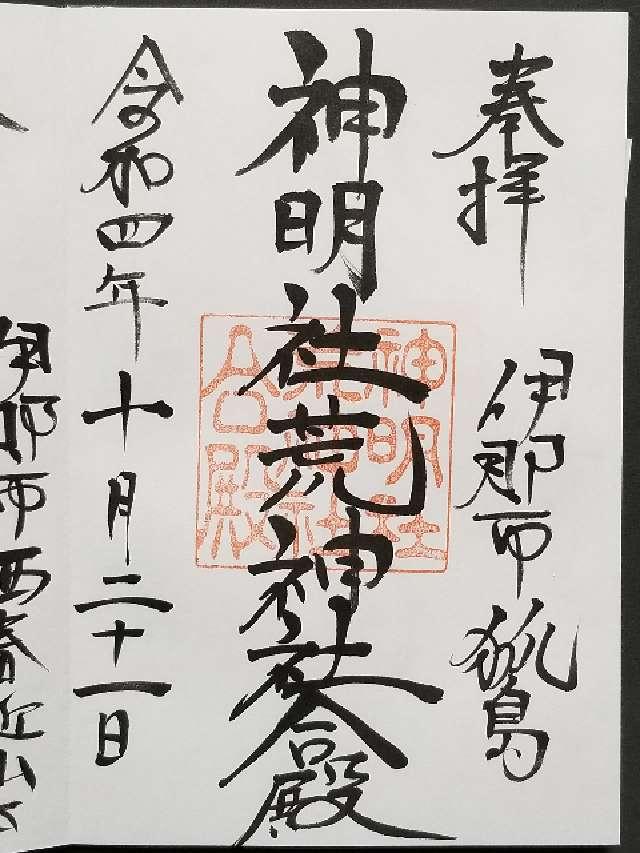 奉拝
伊那市狐島
神明社荒神社合殿
神明社
荒神社
合殿
令和四年十月二十一日
伊那市西春近